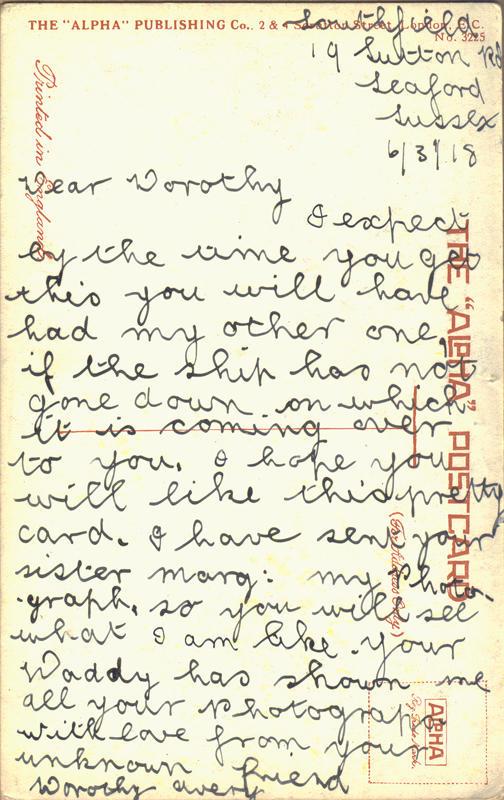 THE "ALPHA" PUBLISHING Co., 2 & 4 Scrutton Street, London, E.C.
No. 3225
Southfield.
19 Sutton Rd
Seaford
Sussex
6/3/18
Printed in England
Dear Dorothy
I expect
by the time you get
this you will have
had my other one,
if the ship has not
gone down on which
it is coming over
to you. I hope you
will like this pretty
card. I have sent your
sister marg: my Photo-
graph. so you will see
what I am like. your
Daddy has shown me
all your Photographs
with love from your
unknown friend
Dorothy avery
THE "ALPHA" POSTCARD
(For Address Only)
ALPHA